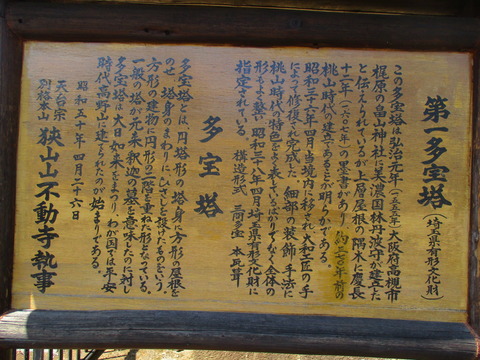 第一多宝塔（埼玉県有形文化財）
この多宝塔は弘治元年（一五五五年）大阪府高槻市
梶原の畠山神社に美濃国林丹波守が建立した
と伝えられているが上層屋根の隅木に慶長
十二年（一六〇七年）の墨書があり
桃山時代の建立であることが明らかである。
昭和三十六年四月当境内に移され大和工匠の手
によって修復され完成した。細部の装飾手法に
桃山時代の特色をよく表しているばかりでなく全体の
形もよく整い昭和三十八年四月埼玉県有形文化財に
指定されている。構造形式 三間多宝塔 本瓦葺
多宝塔
多宝塔とは、円塔形の塔身に方形の屋根を
のせ、塔身のまわりに、ひさしを設けたものをいう
方形の建物に円形の二階を重ねた形となっている。
一般の塔が元来釈迦の墓を意味したのに対し
多宝塔は大日如来をまつり、わが国では平安
時代高野山に建てられたのが始まりである。
昭和五十年四月二十六日
天台宗
別格本山 狭山山不動寺執事